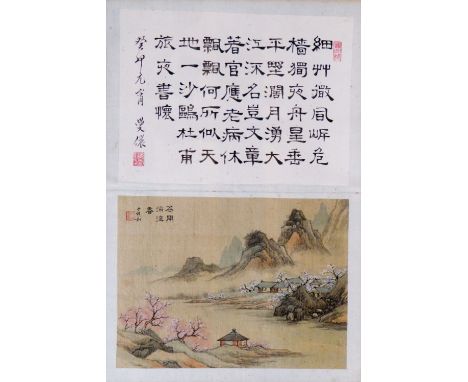 細草微風岸危
檣獨夜舟星垂
平埜濶月湧大
江流名豈文章
著官應老病休
飄飄何所似天
地一沙鷗杜甫
旅夜書懷
癸卯元宵